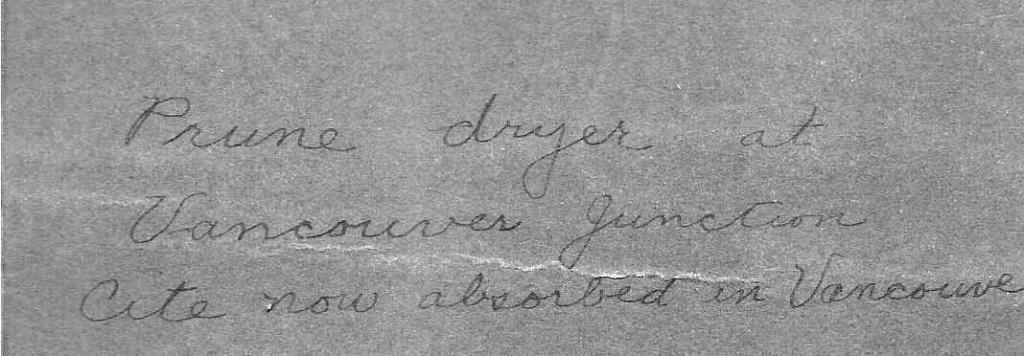 Prune dryer at
Vancouver Junction
Cite now absorbed in Vancouve